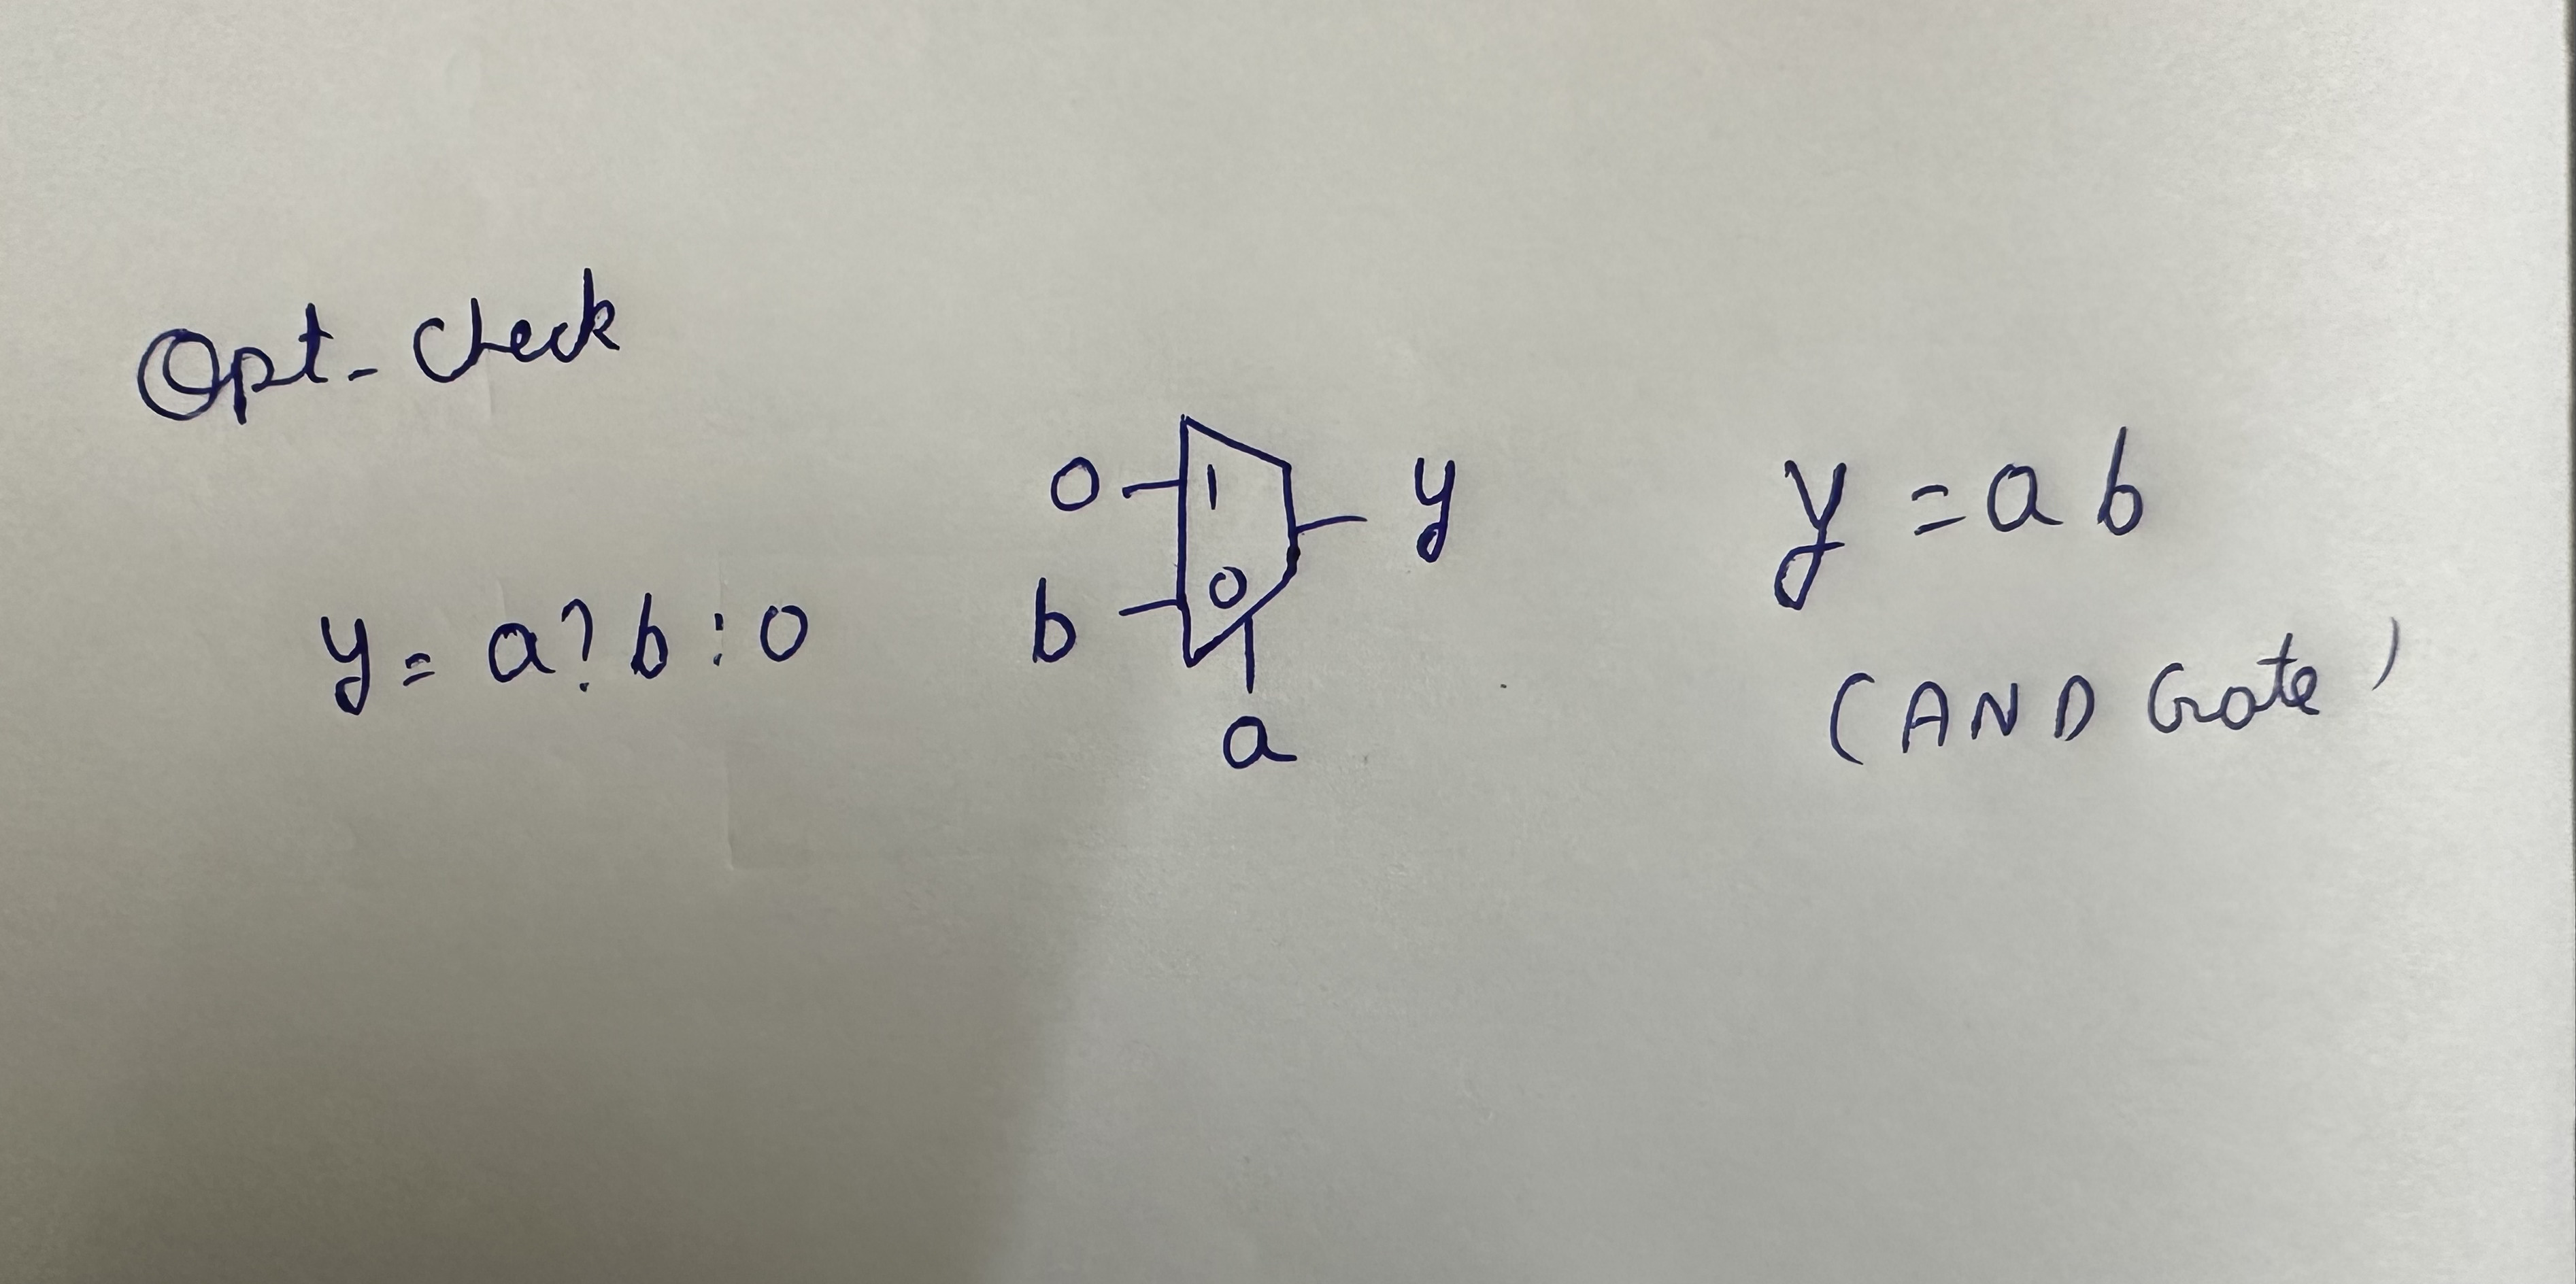 Opt_Check
y = a ? b : 0
0 1 y
b 0
a
y = a b
(AND Gate)